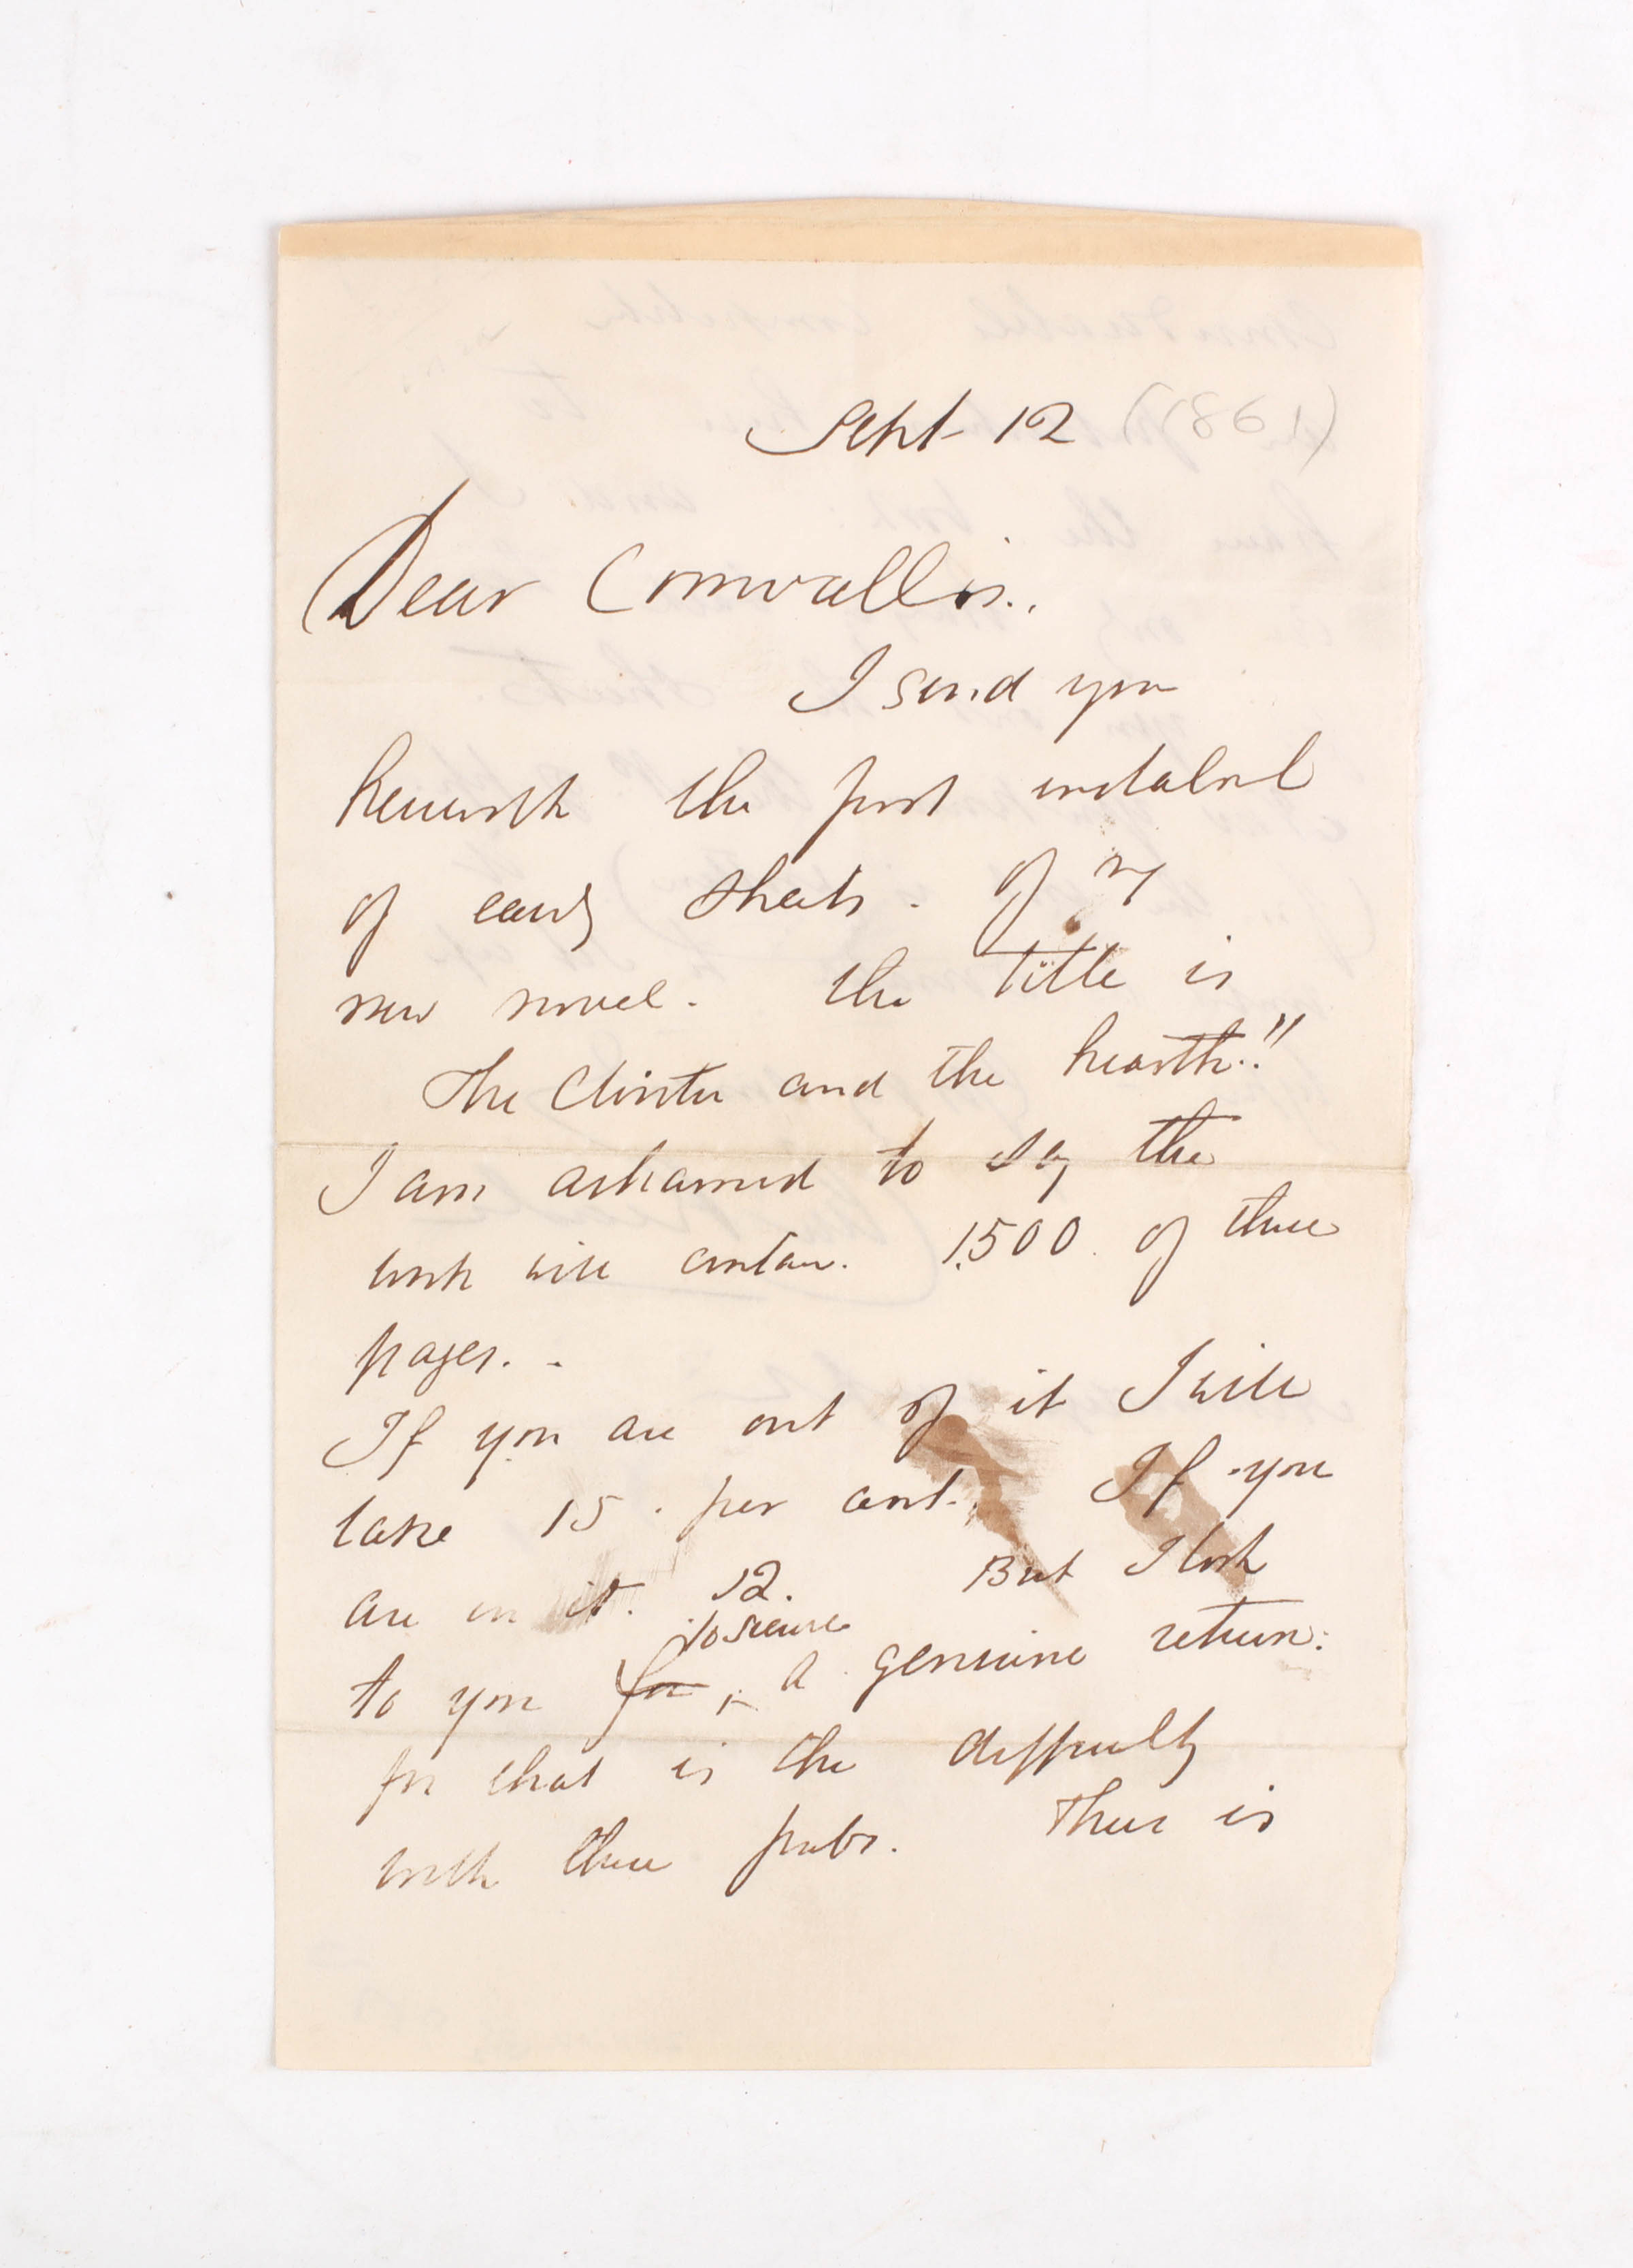 Sept 12 (1861)
Dear Cornwallis.
I send you
herewith the first instalnl
of early sheets. of my
new novel. the Title is
The Cloister and the hearth."
I am ashamed to say the
work will contain. 1500 of these
pages. -
If you are out of it I will
take 15 per cent. If you
are in it. 12. But I look
to secure
to you for a genuine return:
for that is the difficulty
with these pubs. There is